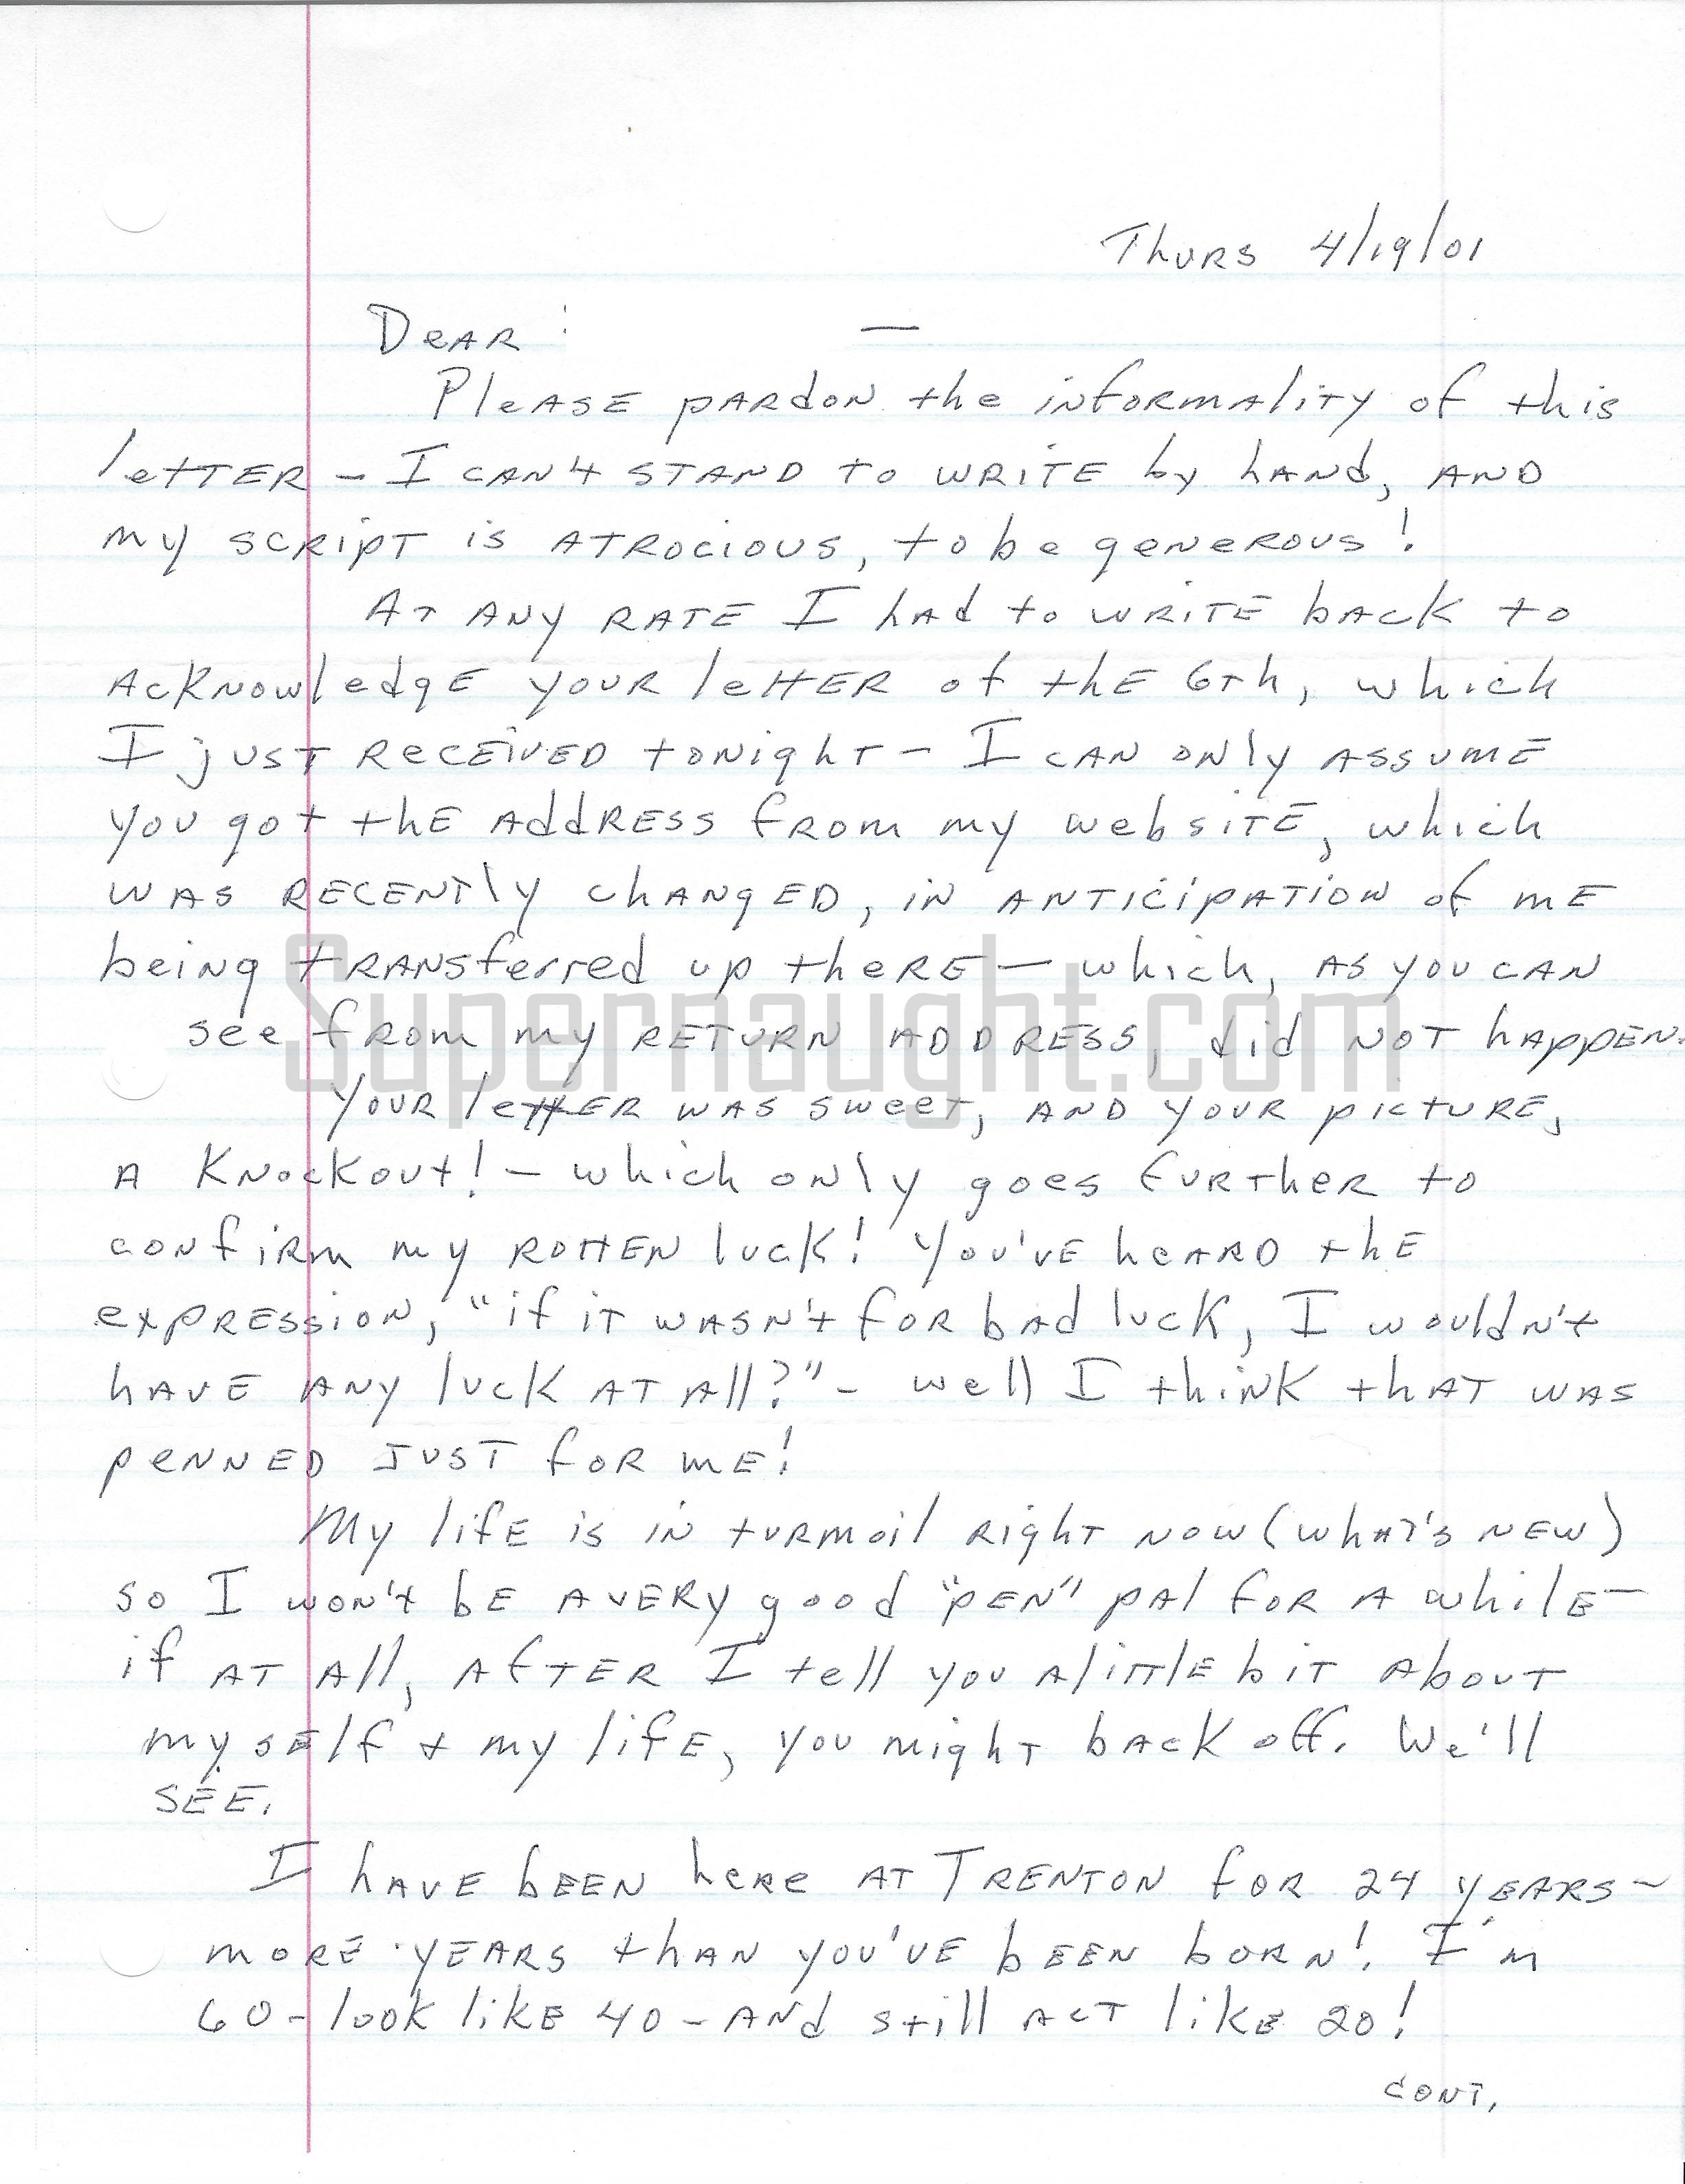 Thurs 4/19/01
Dear : —
Please pardon the informality of this
letter – I can't stand to write by hand, and
my script is atrocious, to be generous!
At any rate I had to write back to
acknowledge your letter of the 6th, which
I just received tonight – I can only assume
you got the address from my website, which
was recently changed, in anticipation of me
being transferred up there – which, as you can
see from my return address, did not happen.
Supernaught.com
Your letter was sweet, and your picture,
a knockout! – which only goes further to
confirm my rotten luck! You've heard the
expression, "if it wasn't for bad luck, I wouldn't
have any luck at all?" – well I think that was
penned just for me!
My life is in turmoil right now (what's new)
so I won't be a very good "pen" pal for a while –
if at all, after I tell you a little bit about
myself + my life, you might back off. We'll
see.
I have been here at Trenton for 24 years –
more years than you've been born! I'm
60 – look like 40 – and still act like 20!
cont.